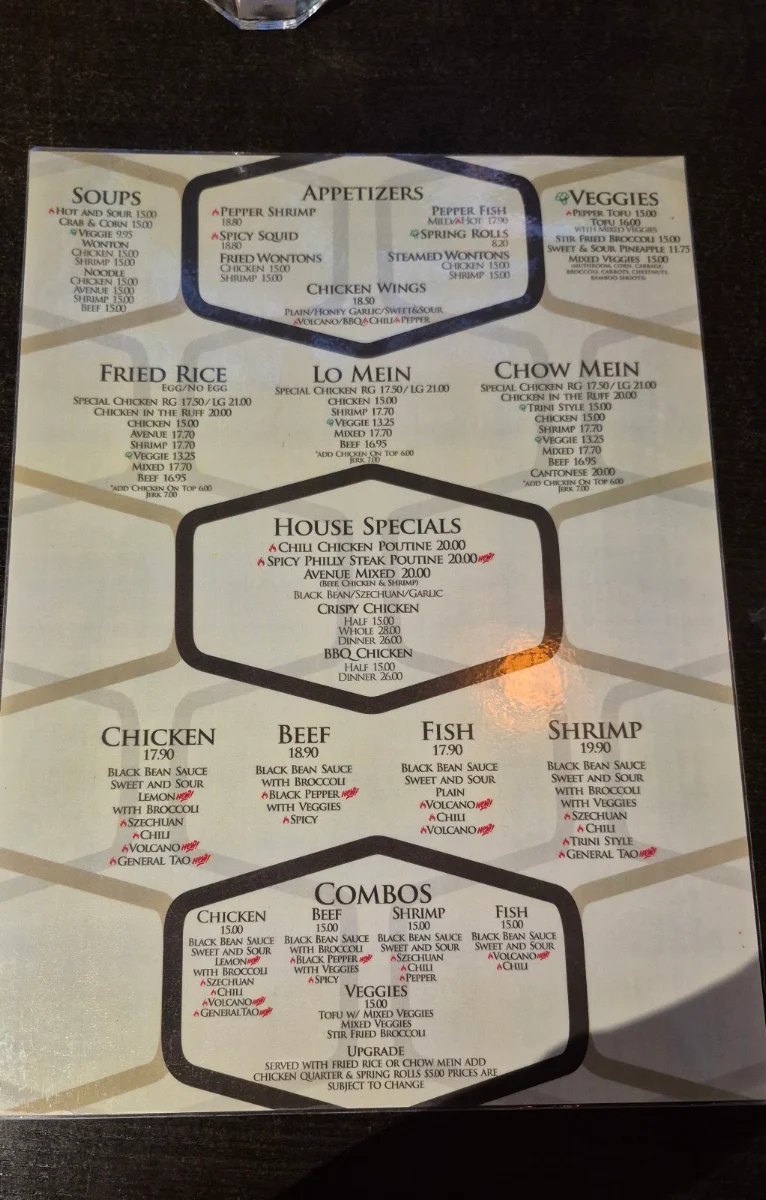 SOUPS
HOT AND SOUR 15.00
CRAB & CORN 15.00
VEGGIE 9.95
WONTON
CHICKEN 15.00
SHRIMP 15.00
NOODLE
CHICKEN 15.00
AVENUE 15.00
SHRIMP 15.00
BEEF 15.00
APPETIZERS
PEPPER SHRIMP
18.80
SPICY SQUID
18.80
FRIED WONTONS
CHICKEN 15.00
SHRIMP 15.00
PEPPER FISH
MILD/HOT 17.90
SPRING ROLLS
8.20
STEAMED WONTONS
CHICKEN 15.00
SHRIMP 15.00
CHICKEN WINGS
18.50
PLAIN/HONEY GARLIC/SWEET&SOUR
VOLCANO/BBQ/CHILI/PEPPER
VEGGIES
PEPPER TOFU 15.00
TOFU 16.00
WITH MIXED VEGGIES
STIR FRIED BROCCOLI 15.00
SWEET & SOUR PINEAPPLE 11.75
MIXED VEGGIES 15.00
(MUSHROOM, CORN, CABBAGE,
BROCCOLI, CARROTS, CHESTNUTS,
BAMBOO SHOOTS)
FRIED RICE
EGG/NO EGG
SPECIAL CHICKEN RG 17.50/ LG 21.00
CHICKEN IN THE RUFF 20.00
CHICKEN 15.00
AVENUE 17.70
SHRIMP 17.70
VEGGIE 13.25
MIXED 17.70
BEEF 16.95
*ADD CHICKEN ON TOP 6.00
JERK 7.00
LO MEIN
SPECIAL CHICKEN RG 17.50/ LG 21.00
CHICKEN 15.00
SHRIMP 17.70
VEGGIE 13.25
MIXED 17.70
BEEF 16.95
*ADD CHICKEN ON TOP 6.00
JERK 7.00
CHOW MEIN
SPECIAL CHICKEN RG 17.50/ LG 21.00
CHICKEN IN THE RUFF 20.00
TRINI STYLE 15.00
CHICKEN 15.00
SHRIMP 17.70
VEGGIE 13.25
MIXED 17.70
BEEF 16.95
CANTONESE 20.00
*ADD CHICKEN ON TOP 6.00
JERK 7.00
HOUSE SPECIALS
CHILI CHICKEN POUTINE 20.00
SPICY PHILLY STEAK POUTINE 20.00 NEW!
AVENUE MIXED 20.00
(BEEF, CHICKEN & SHRIMP)
BLACK BEAN/SZECHUAN/GARLIC
CRISPY CHICKEN
HALF 15.00
WHOLE 28.00
DINNER 26.00
BBQ CHICKEN
HALF 15.00
DINNER 26.00
CHICKEN
17.90
BLACK BEAN SAUCE
SWEET AND SOUR
LEMON NEW!
WITH BROCCOLI
SZECHUAN
CHILI
VOLCANO NEW!
GENERAL TAO NEW!
BEEF
18.90
BLACK BEAN SAUCE
WITH BROCCOLI
BLACK PEPPER NEW!
WITH VEGGIES
SPICY
FISH
17.90
BLACK BEAN SAUCE
SWEET AND SOUR
PLAIN
VOLCANO NEW!
CHILI
VOLCANO NEW!
SHRIMP
19.90
BLACK BEAN SAUCE
SWEET AND SOUR
WITH BROCCOLI
WITH VEGGIES
SZECHUAN
CHILI
TRINI STYLE
GENERAL TAO NEW!
COMBOS
CHICKEN
15.00
BLACK BEAN SAUCE
SWEET AND SOUR
LEMON NEW!
WITH BROCCOLI
SZECHUAN
CHILI
VOLCANO NEW!
GENERAL TAO NEW!
BEEF
15.00
BLACK BEAN SAUCE
WITH BROCCOLI
BLACK PEPPER NEW!
WITH VEGGIES
SPICY
SHRIMP
15.00
BLACK BEAN SAUCE
SWEET AND SOUR
SZECHUAN
CHILI
PEPPER
FISH
15.00
BLACK BEAN SAUCE
SWEET AND SOUR
VOLCANO NEW!
CHILI
VEGGIES
15.00
TOFU W/ MIXED VEGGIES
MIXED VEGGIES
STIR FRIED BROCCOLI
UPGRADE
SERVED WITH FRIED RICE OR CHOW MEIN ADD
CHICKEN QUARTER & SPRING ROLLS $5.00 PRICES ARE
SUBJECT TO CHANGE